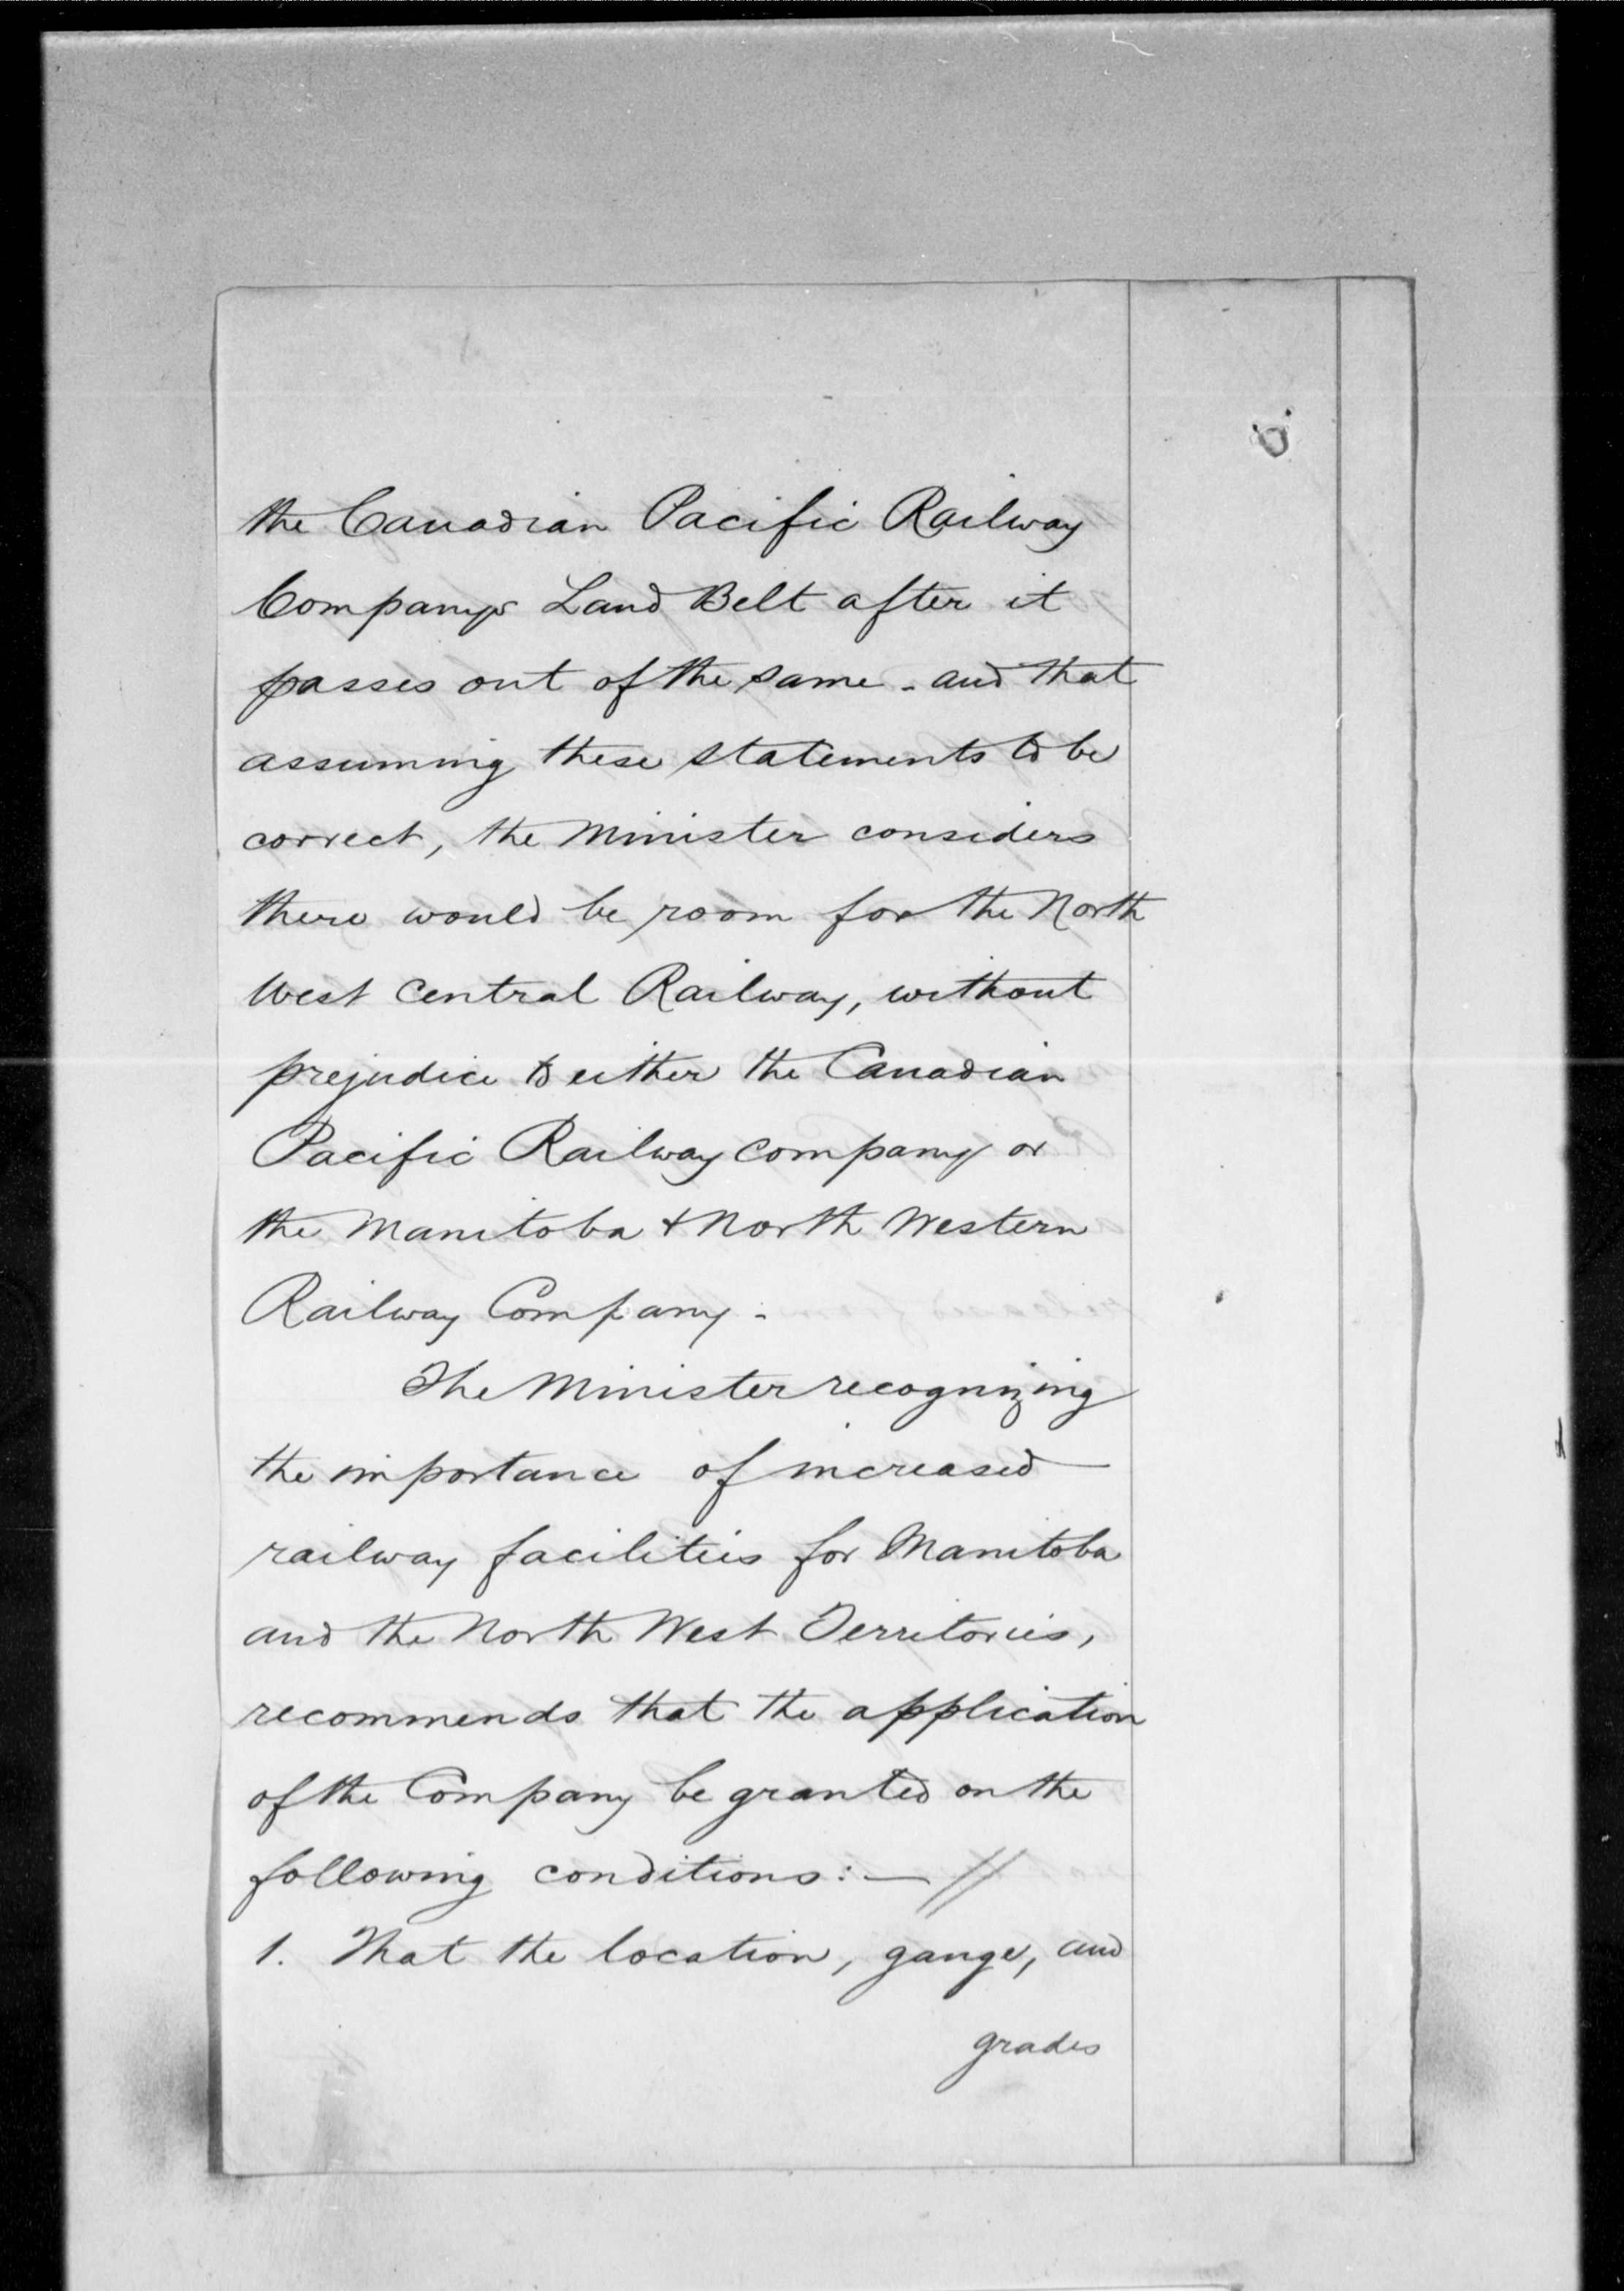 the Canadian Pacific Railway
Companys Land Belt after it
passes out of the same - and that
assuming these statements to be
correct, the Minister considers
there would be room for the North
West Central Railway, without
prejudice to either the Canadian
Pacific Railway Company or
the Manitoba & North Western
Railway Company -
The Minister recognizing
the importance of increased
railway facilities for Manitoba
and the North West Territories,
recommends that the application
of the Company be granted on the
following conditions: — //
1. That the location, gauge, and
grades